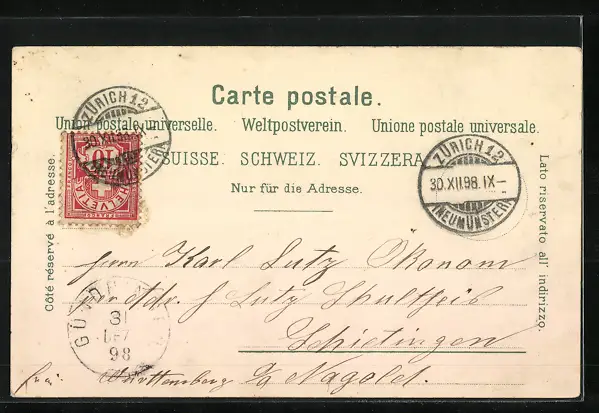 Carte postale.
Union postale universelle. Weltpostverein. Unione postale universale.
SUISSE. SCHWEIZ. SVIZZERA
Nur für die Adresse.
Côté réservé à l'adresse.
Lato riservato all' indirizzo.
ZÜRICH 12
30.XII.98.IX-
(NEUMÜNSTER)
ZÜRICH 12
30.XII.98.IX-
(NEUMÜNSTER)
10
HELVETIA
FRANCO
GÜND
31
DEZ
98
Herrn Karl Lutz Ökonom
per Adr. f Lutz Schultheis
Schietingen
Württemberg o/a Nagold.